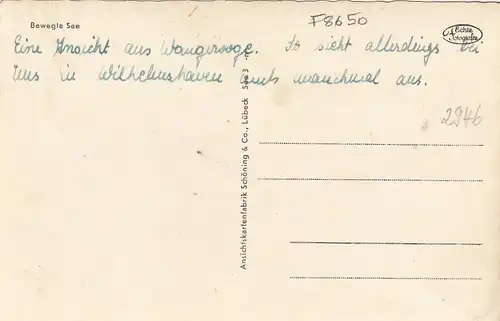 Bewegte See
F8650
Echte Fotografie
Eine Ansicht aus Wangerooge. So sieht allerdings bei
uns in Wilhelmshaven auch manchmal aus.
2946
Ansichtskartenfabrik Schöning & Co., Lübeck See 3